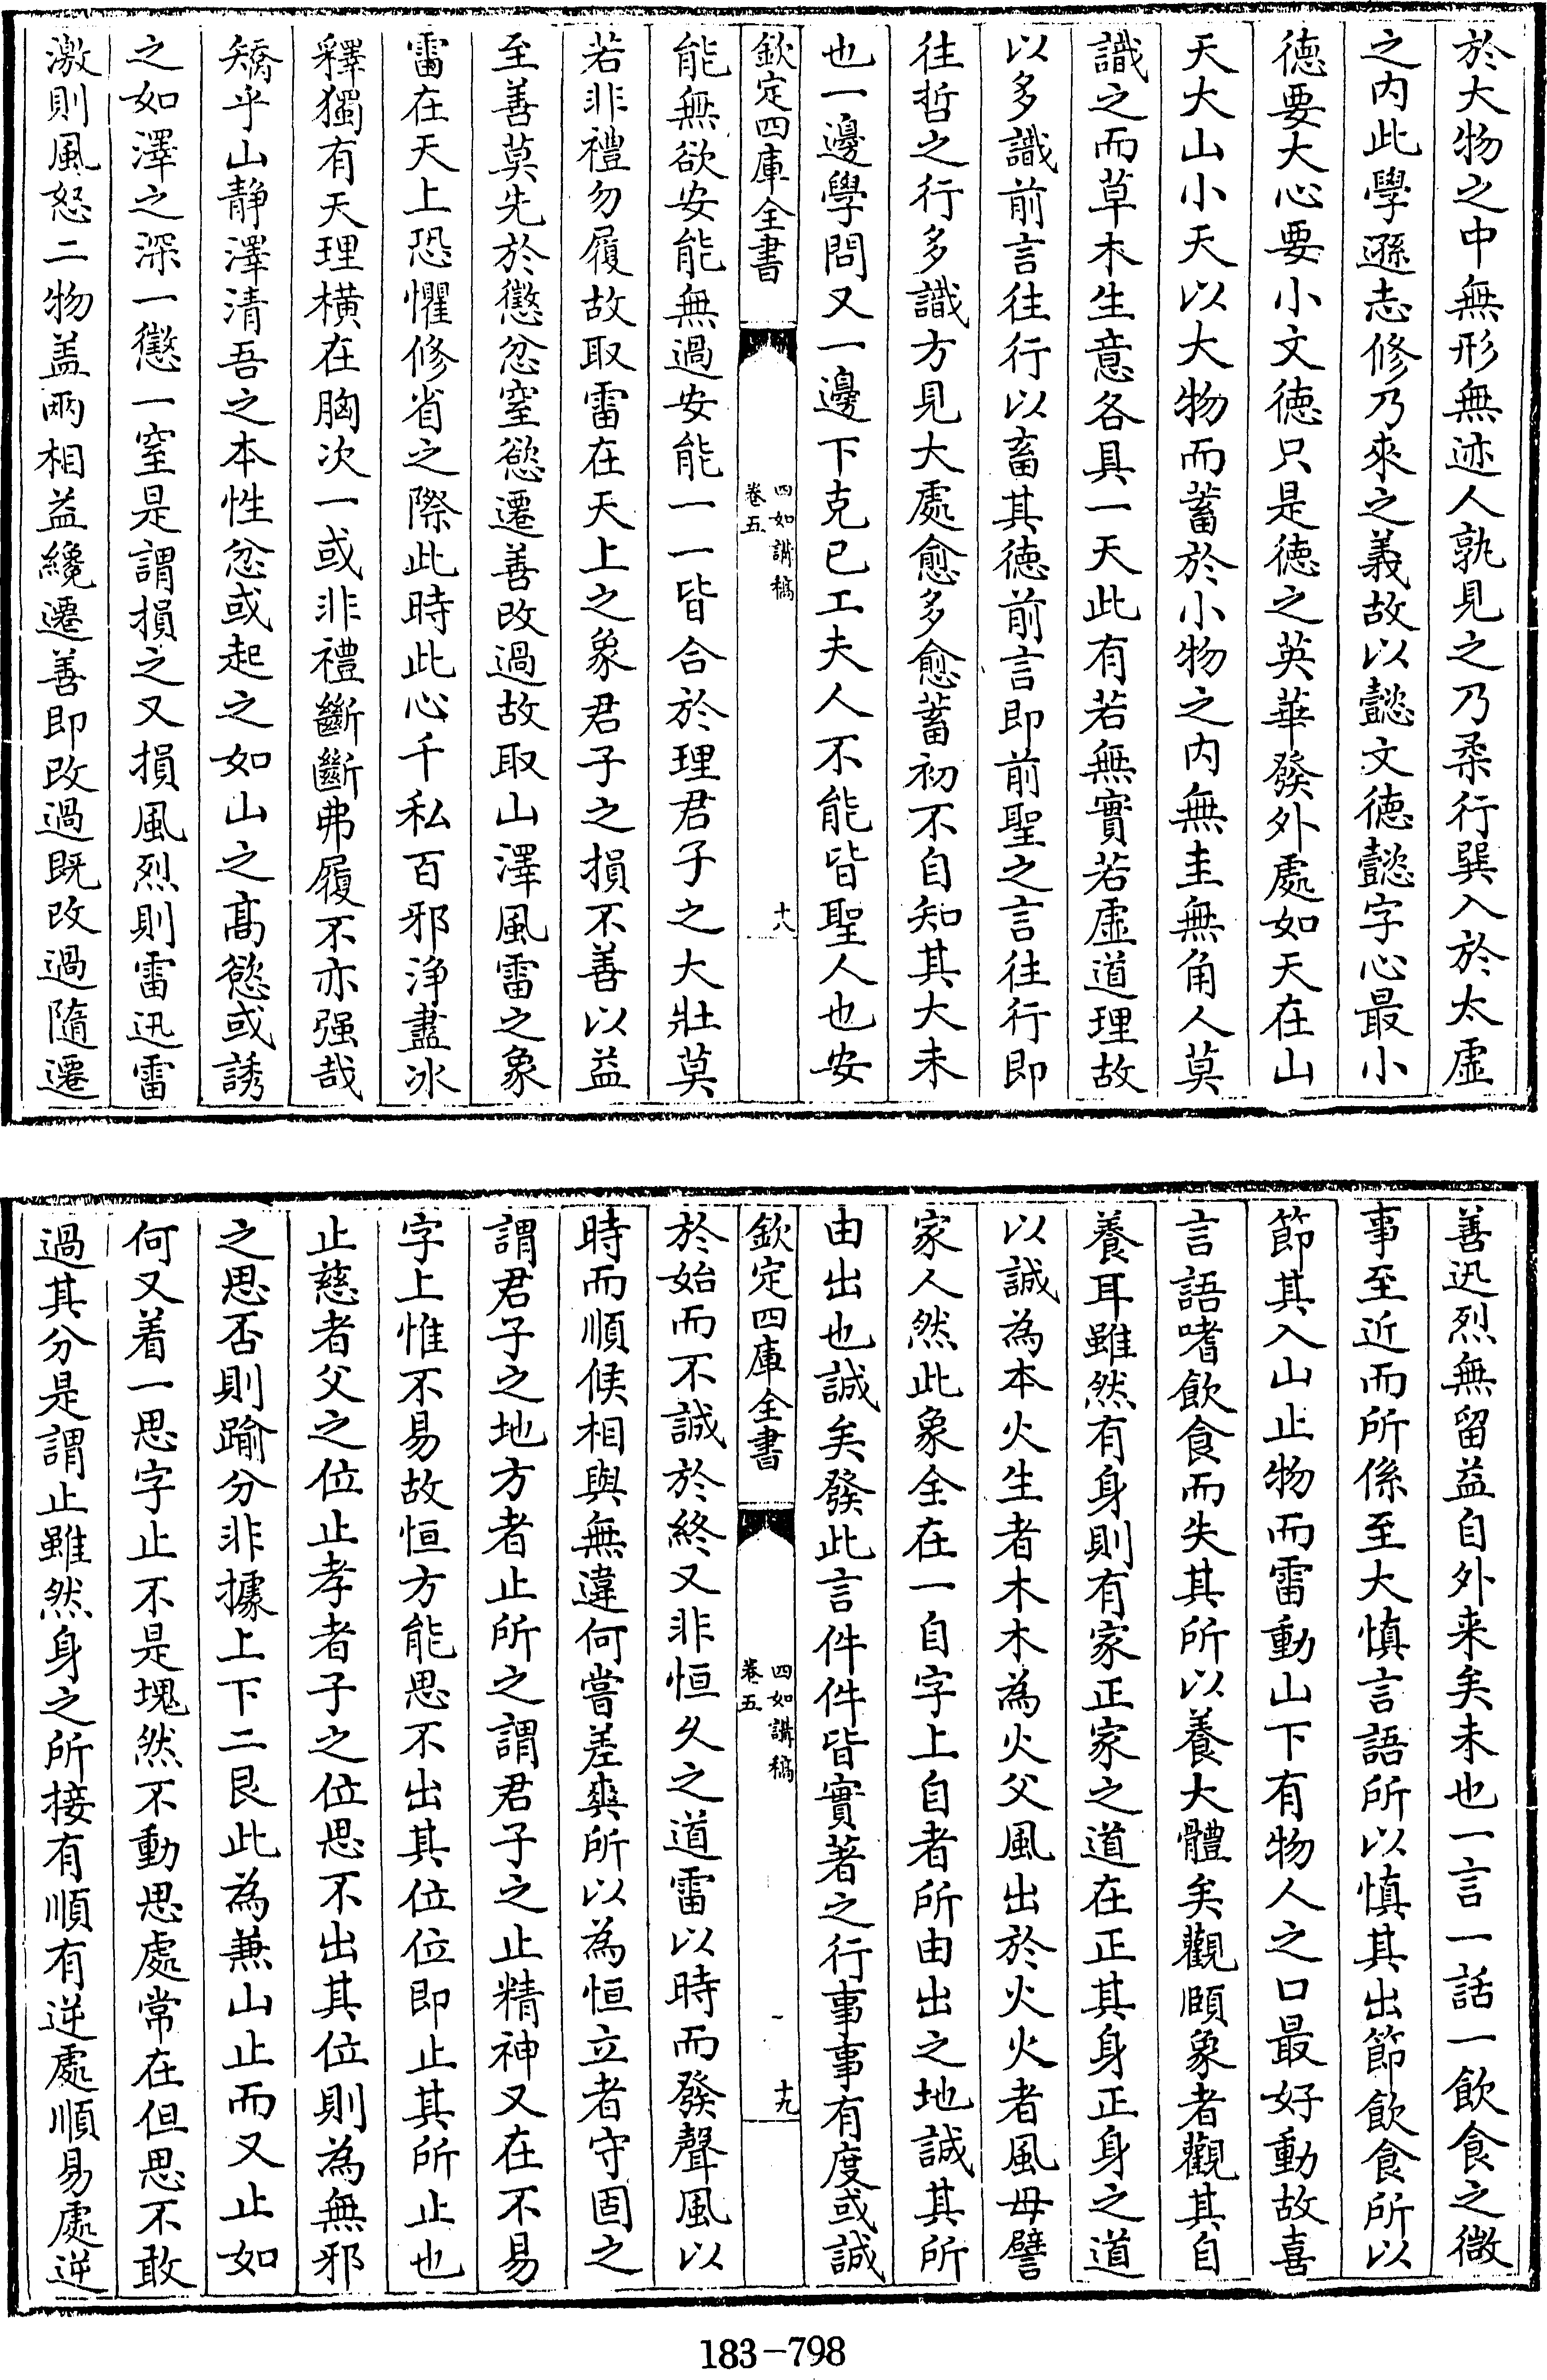 於大物之中無形無迹人孰見之乃柔行巽入於太虛
之内此學遜志修乃來之義故以懿文德懿字心最小
德要大心要小文德只是德之英華發外處如天在山
天大山小天以大物而蓄於小物之内無圭無角人莫
識之而草木生意各具一天此有若無實若虛道理故
以多識前言往行以畜其德前言即前聖之言往行即
往哲之行多識方見大處愈多愈蓄初不自知其大未
也一邊學問又一邊下克已工夫人不能皆聖人也安
欽定四庫全書
四如講稿
卷五
十八
能無欲安能無過安能一一皆合於理君子之大壯莫
若非禮勿履故取雷在天上之象君子之損不善以益
至善莫先於懲忿窒慾遷善改過故取山澤風雷之象
雷在天上恐懼修省之際此時此心千私百邪浄盡冰
釋獨有天理橫在胸次一或非禮斷斷弗履不亦强哉
矯乎山静澤清吾之本性忿或起之如山之高慾或誘
之如澤之深一懲一窒是謂損之又損風烈則雷迅雷
激則風怒二物盖兩相益纔遷善即改過既改過隨遷
善迅烈無留益自外来矣未也一言一話一飲食之微
事至近而所係至大慎言語所以慎其出節飲食所以
節其入山止物而雷動山下有物人之口最好動故喜
言語嗜飲食而失其所以養大體矣觀頤象者觀其自
養耳雖然有身則有家正家之道在正其身正身之道
以誠為本火生者木木為火父風出於火火者風母譬
家人然此象全在一自字上自者所由出之地誠其所
由出也誠矣發此言件件皆實著之行事事有度或誠
欽定四庫全書
四如講稿
卷五
十九
於始而不誠於終又非恒久之道雷以時而發聲風以
時而順候相與無違何嘗差爽所以為恒立者守固之
謂君子之地方者止所之謂君子之止精神又在不易
字上惟不易故恒方能思不出其位位即止其所止也
止慈者父之位止孝者子之位思不出其位則為無邪
之思否則踰分非據上下二艮此為兼山止而又止如
何又着一思字止不是塊然不動思處常在但思不敢
過其分是謂止雖然身之所接有順有逆處順易處逆
183-798